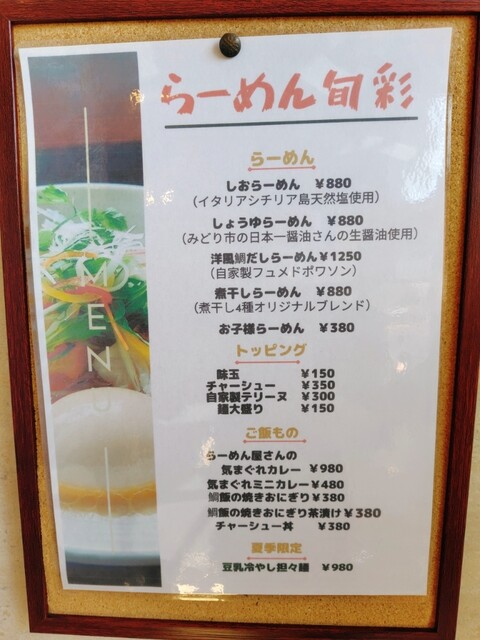 らーめん旬彩
MENU
らーめん
しおらーめん ￥880
（イタリアシチリア島天然塩使用）
しょうゆらーめん ￥880
（みどり市の日本一醤油さんの生醤油使用）
洋風鯛だしらーめん￥1250
（自家製フュメドポワソン）
煮干しらーめん ￥880
（煮干し4種オリジナルブレンド）
お子様らーめん ￥380
トッピング
味玉 ￥150
チャーシュー ￥350
自家製テリーヌ ￥300
麺大盛り ￥150
ご飯もの
らーめん屋さんの
気まぐれカレー ￥980
気まぐれミニカレー￥480
鯛飯の焼きおにぎり￥380
鯛飯の焼きおにぎり茶漬け￥380
チャーシュー丼 ￥380
夏季限定
豆乳冷やし担々麺 ￥980